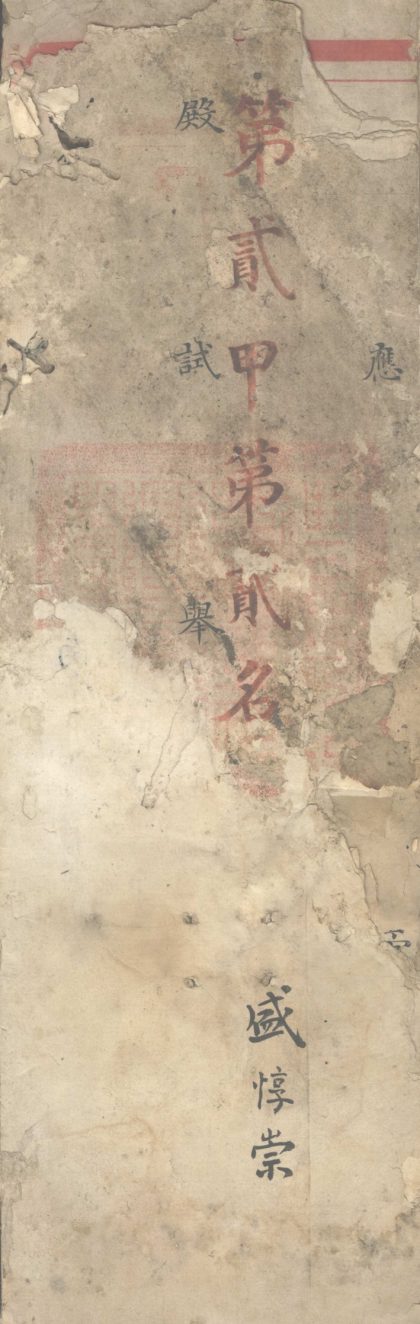 應
第貳甲第貳名
盛惇崇
殿試舉